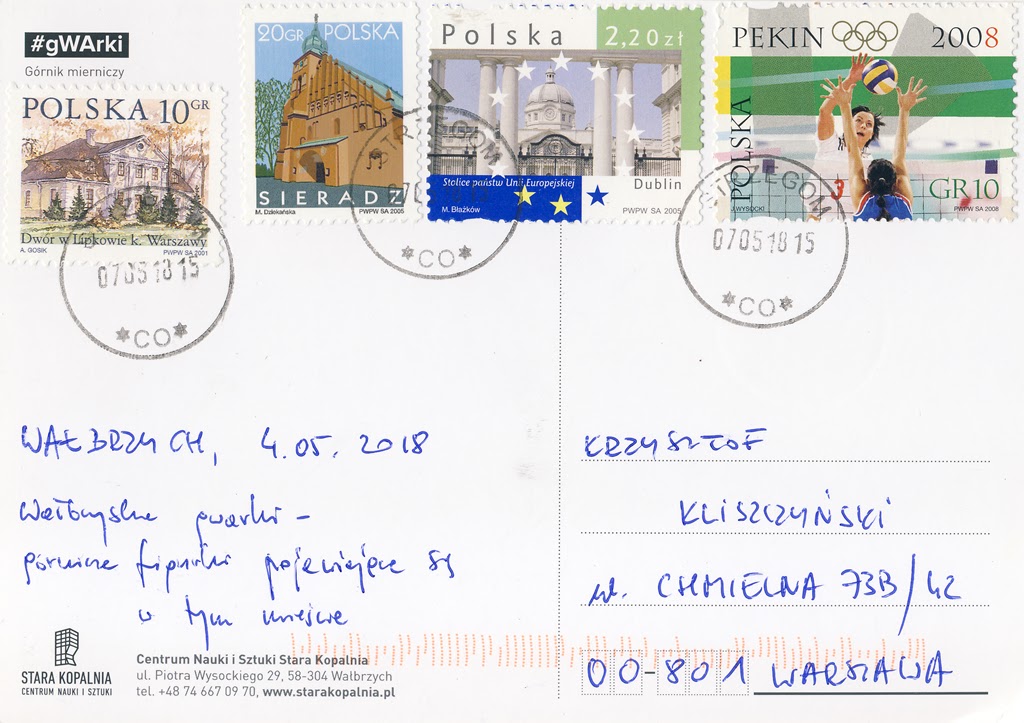 #gWArki
Górnik mierniczy
POLSKA 10 GR
Dwór w Lipkowie k. Warszawy
A. GOSIK PWPW SA 2001
20GR POLSKA
SIERADZ
M. Dziekańska PWPW SA 2005
Polska 2,20 zł
Stolice państw Unii Europejskiej
Dublin
M. Błażków PWPW SA 2005
PEKIN 2008
POLSKA
3
GR 10
J.WYSOCKI PWPW SA 2008
07051815
*CO*
STRZEGOM
*CO*
STRZEGOM
07051815
*CO*
WAŁBRZYCH, 4.05.2018
Wałbrzyskie gwarki –
górnicze figurki pojawiające się
w tym mieście
KRZYSZTOF
KLISZCZYŃSKI
ul. CHMIELNA 73B/42
00-801 WARSZAWA
STARA KOPALNIA
CENTRUM NAUKI I SZTUKI
Centrum Nauki i Sztuki Stara Kopalnia
ul. Piotra Wysockiego 29, 58-304 Wałbrzych
tel. +48 74 667 09 70, www.starakopalnia.pl